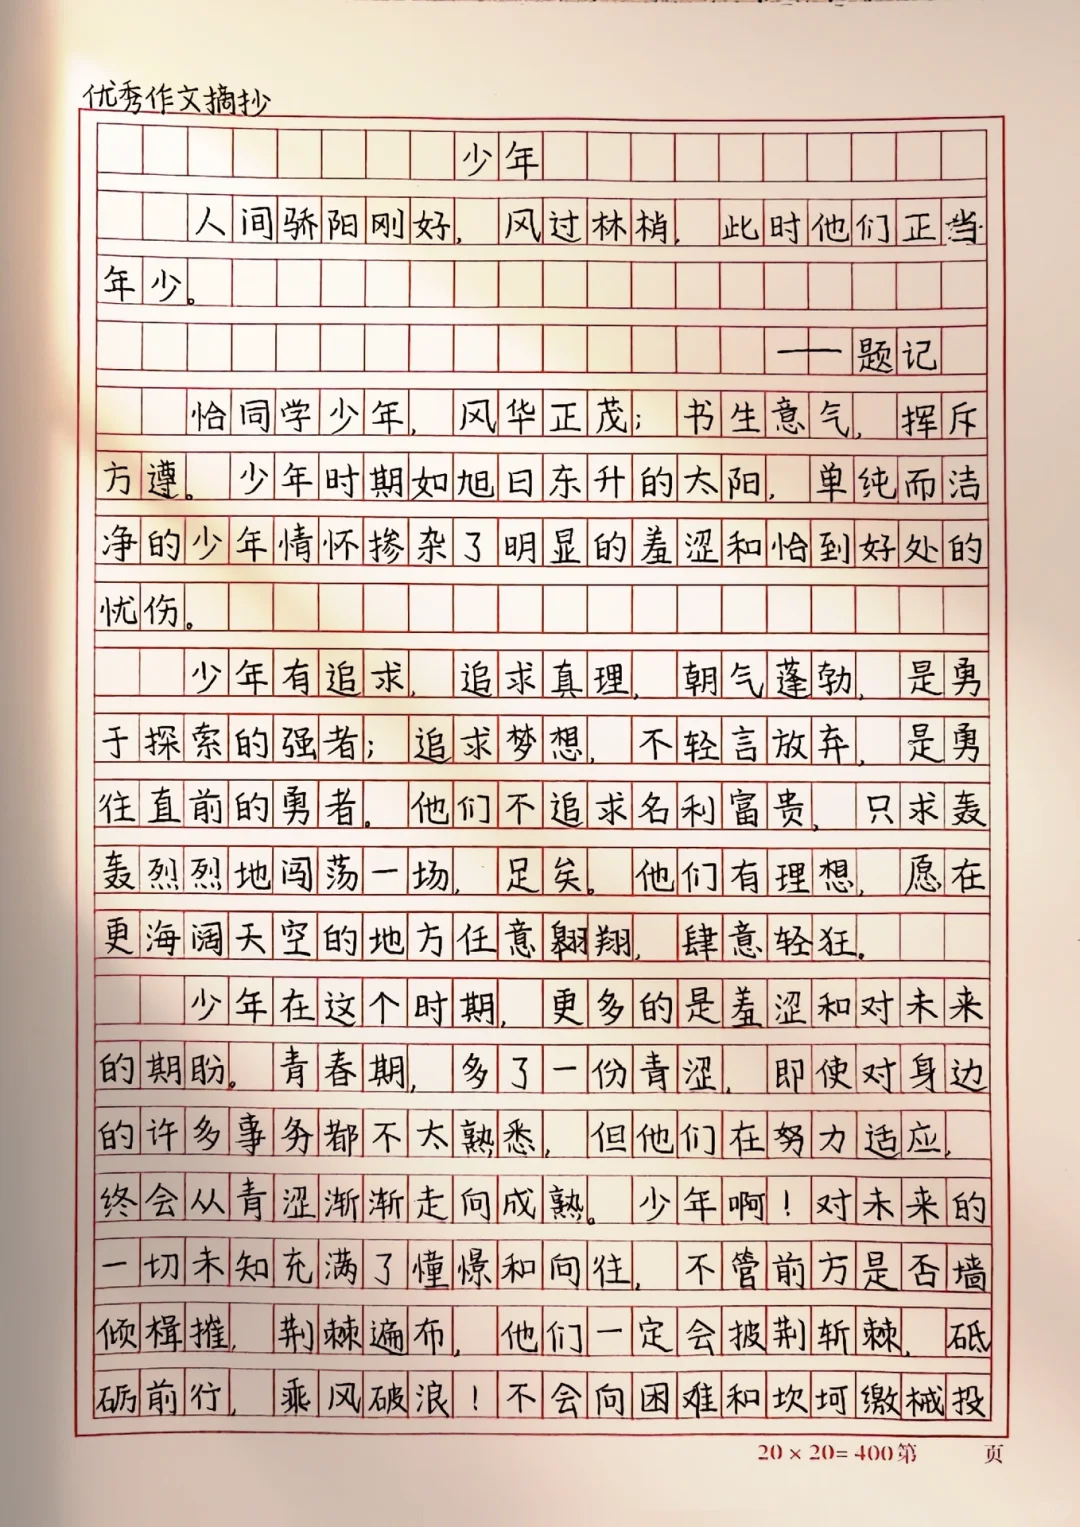 优秀作文摘抄
少年
人间骄阳刚好，风过林梢，此时他们正当
年少。
——题记
恰同学少年，风华正茂；书生意气，挥斥
方遵。少年时期如旭日东升的太阳，单纯而洁
净的少年情怀掺杂了明显的羞涩和恰到好处的
忧伤。
少年有追求，追求真理，朝气蓬勃，是勇
于探索的强者；追求梦想，不轻言放弃，是勇
往直前的勇者。他们不追求名利富贵，只求轰
轰烈烈地闯荡一场，足矣。他们有理想，愿在
更海阔天空的地方任意翱翔，肆意轻狂。
少年在这个时期，更多的是羞涩和对未来
的期盼。青春期，多了一份青涩，即使对身边
的许多事务都不太熟悉，但他们在努力适应，
终会从青涩渐渐走向成熟。少年啊！对未来的
一切未知充满了憧憬和向往，不管前方是否墙
倾楫摧，荆棘遍布，他们一定会披荆斩棘，砥
砺前行，乘风破浪！不会向困难和坎坷缴械投
20×20=400第 页